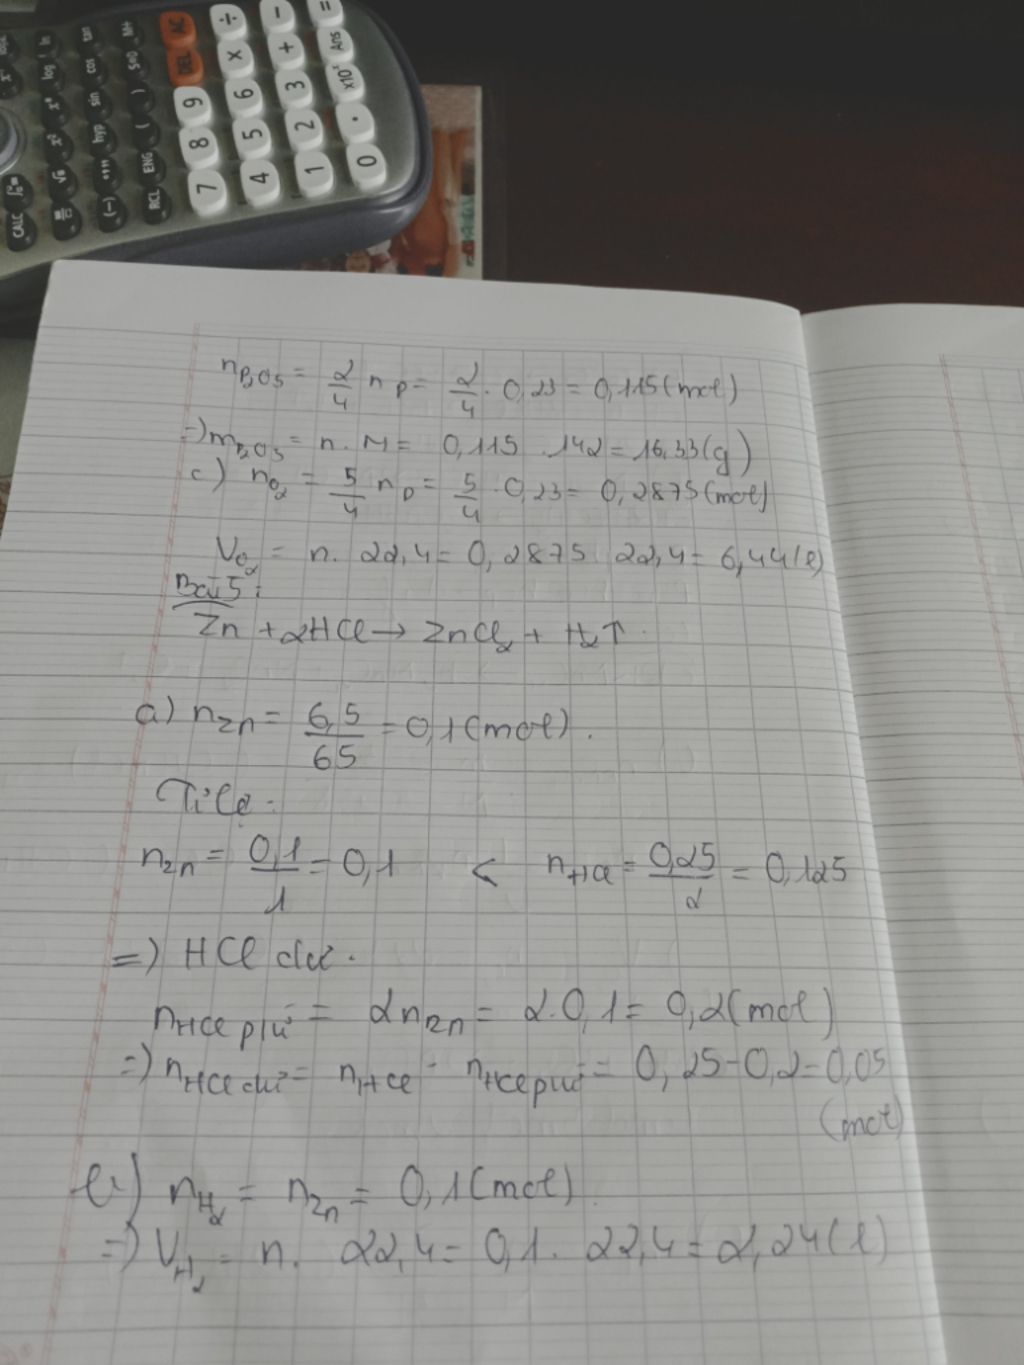 CALC ∫ x⁻¹
√ x² xʸ log ln
(-) °'" hyp sin cos tan
RCL ENG ( ) S⇔D M+
7 8 9 DEL AC
4 5 6 × ÷
1 2 3 + −
0 . ×10ˣ Ans =
nP₂O₅ = 2/4 nP = 2/4 . 0,23 = 0,115(mol)
=) mP₂O₅ = n.M = 0,115 .142 = 16,33(g)
c) nO₂ = 5/4 nP = 5/4 . 0,23 = 0,2875(mol)
VO₂ = n. 22,4 = 0,2875 22,4 = 6,44(l)
Bài 5:
Zn + 2HCl → ZnCl₂ + H₂↑
a) nZn = 6,5/65 = 0,1(mol).
Tỉ lệ:
nZn = 0,1/1 = 0,1 < nHCl = 0,25/2 = 0,125
=) HCl dư.
nHCl p/ứ = 2nZn = 2.0,1 = 0,2(mol)
=) nHCl dư = nHCl - nHCl pứ = 0,25-0,2=0,05
(mol)
b) nH₂ = nZn = 0,1(mol)
=) VH₂ = n. 22,4 = 0,1. 22,4 = 2,24(l)